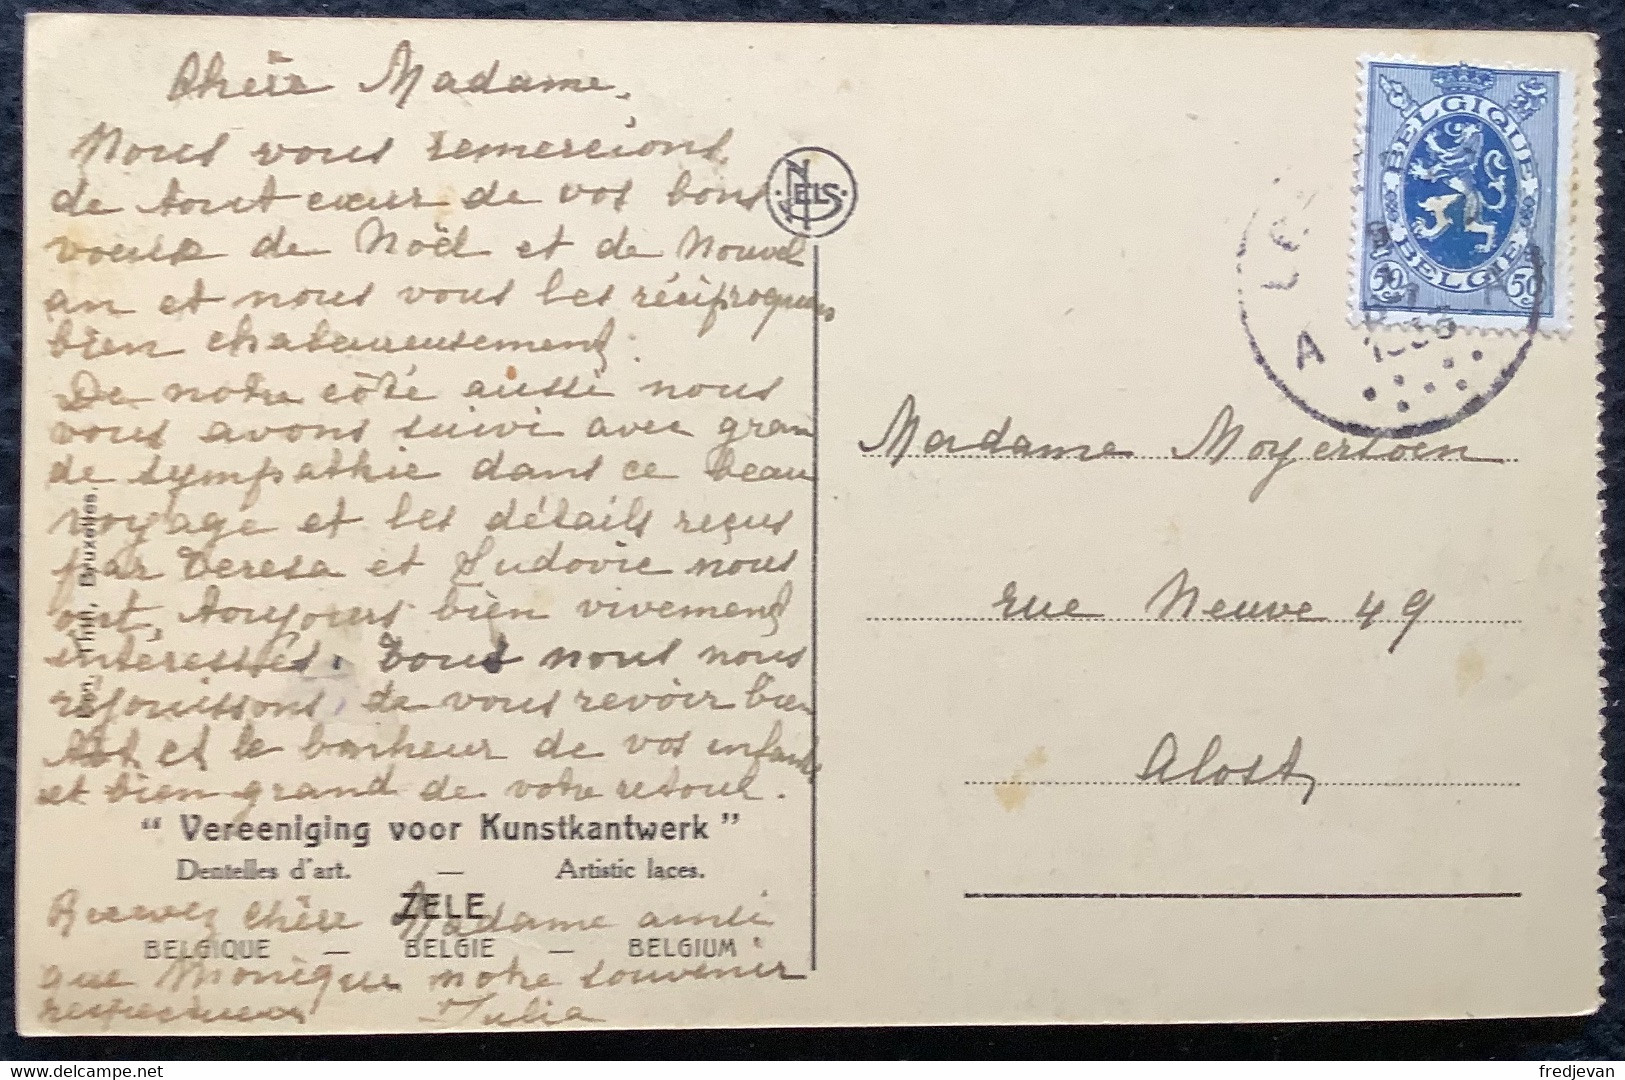 Chère Madame.
Nous vous remercions
de tout cœur de vos bons
voeux de Noël et de Nouvel
an et nous vous les réciproquons
bien chaleureusement.
De notre côté aussi nous
vous avons suivi avec gran
de sympathie dans ce beau
voyage et les détails reçus
par Teresa et Ludovic nous
ont toujours bien vivement
intéressés. Tous nous nous
réjouissons de vous revoir bien
tôt et le bonheur de vos enfants
et bien grand de votre retour.
NELS
Thill, Bruxelles.
“ Vereeniging voor Kunstkantwerk ”
Dentelles d'art. — Artistic laces.
ZELE
BELGIQUE — BELGIE — BELGIUM
Recevez chère Madame ainsi
que Monique notre souvenir
respectueux Julia
BELGIQUE
BELGIE
50 50
A
Madame Moyersoen
rue Neuve 49
Alost
fredjevan